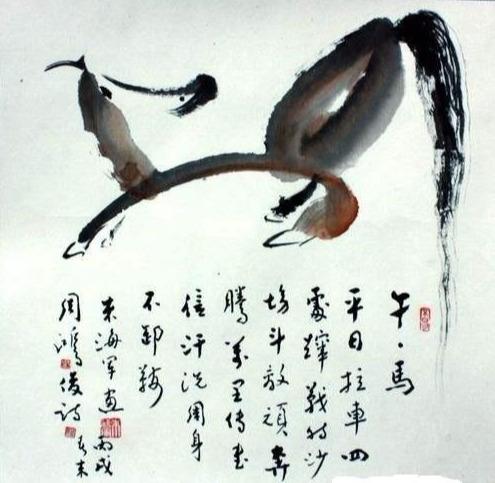 午·馬
平日拉車四
處蹿戰時沙
場斗敌頑奔
騰萬里傳書
信汗洗周身
不卸鞍
東海軍画丙戌
周鴻俊詩春末